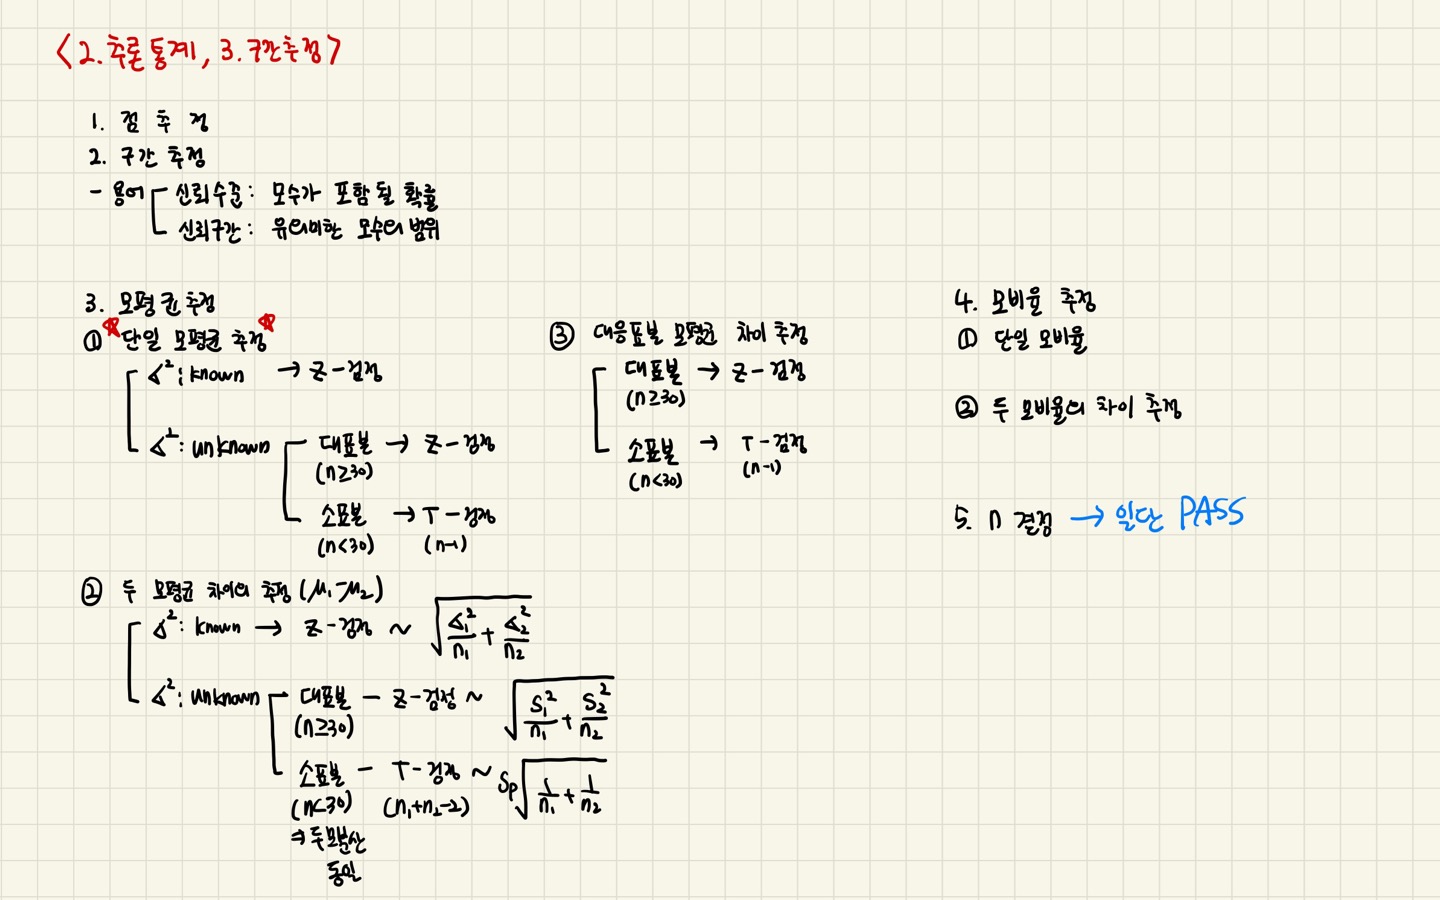 <2. 추론통계, 3. 구간추정>
1. 점 추 정
2. 구간 추정
- 용어 신뢰수준: 모수가 포함될 확률
신뢰구간: 유의미한 모수의 범위
3. 모평균 추정
① 단일 모평균 추정
σ²: known → Z-검정
σ²: unknown 대표본 → Z-검정
(n≥30)
소표본 → T-검정
(n<30) (n-1)
② 두 모평균 차이의 추정 (μ₁-μ₂)
σ²: known → Z-검정 ~ √(σ₁²/n₁ + σ₂²/n₂)
σ²: unknown 대표본 - Z-검정 ~ √(S₁²/n₁ + S₂²/n₂)
(n≥30)
소표본 - T-검정 ~ Sp√(1/n₁ + 1/n₂)
(n<30) (n₁+n₂-2)
⇒ 두 모분산
동일
③ 대응표본 모평균 차이 추정
대표본 → Z-검정
(n≥30)
소표본 → T-검정
(n<30) (n-1)
4. 모비율 추정
① 단일 모비율
② 두 모비율의 차이 추정
5. n 결정 → 일단 PASS